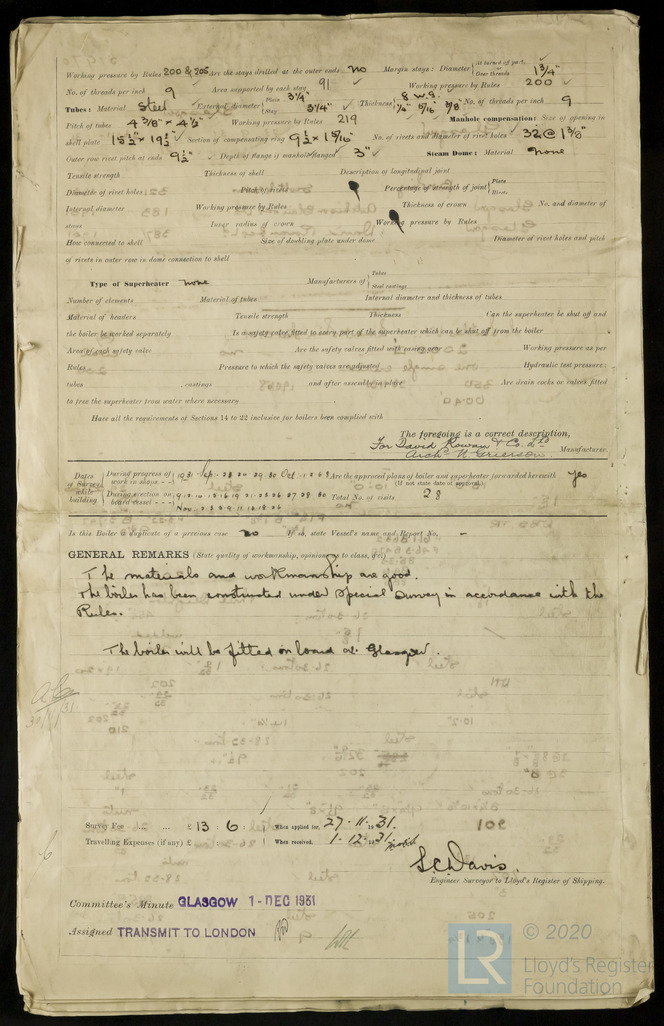 Working pressure by Rules 200 & 205 Are the stays drilled at the outer ends no Margin stays: Diameter { At turned off part, or Over threads 1 3/4"
No. of threads per inch 9 Area supported by each stay 91 Working pressure by Rules 200
Tubes: Material Steel External diameter { Plain 3 1/4" Stay 3 1/4" Thickness { 8 W.G. 1/4" 5/16 3/8 No. of threads per inch 9
Pitch of tubes 4 3/8" × 4 1/2" Working pressure by Rules 219 Manhole compensation: Size of opening in
shell plate 15 1/2" × 19 1/2" Section of compensating ring 9 1/2" × 1 5/16" No. of rivets and diameter of rivet holes 32 @ 1 3/8"
Outer row rivet pitch at ends 9 1/2" Depth of flange if manhole flanged 3" Steam Dome: Material none
Tensile strength Thickness of shell Description of longitudinal joint
Diameter of rivet holes Pitch of rivets Percentage of strength of joint { Plate Rivets
Internal diameter Working pressure by Rules Thickness of crown No. and diameter of
stays Inner radius of crown Working pressure by Rules
How connected to shell Size of doubling plate under dome Diameter of rivet holes and pitch
of rivets in outer row in dome connection to shell
Type of Superheater none Manufacturers of { Tubes Steel castings
Number of elements Material of tubes Internal diameter and thickness of tubes
Material of headers Tensile strength Thickness Can the superheater be shut off and
the boiler be worked separately Is a safety valve fitted to every part of the superheater which can be shut off from the boiler
Area of each safety valve Are the safety valves fitted with easing gear Working pressure as per
Rules Pressure to which the safety valves are adjusted Hydraulic test pressure:
tubes castings and after assembly in place Are drain cocks or valves fitted
to free the superheater from water where necessary
Have all the requirements of Sections 14 to 22 inclusive for boilers been complied with
The foregoing is a correct description,
For David Rowan & Co. Ltd
Archd W. Grierson. Manufacturer.
Dates of Survey while building { During progress of work in shops - - 1931 Sep. 23 24 29 30 Oct. 1 2 6 Are the approved plans of boiler and superheater forwarded herewith yes
(If not state date of approval.)
During erection on board vessel - - - 9 12 14 15 16 19 21 23 26 27 28 30 Total No. of visits 28
Nov. 2 3 5 9 11 16 18 26
Is this Boiler a duplicate of a previous case no If so, state Vessel's name and Report No. -
GENERAL REMARKS (State quality of workmanship, opinions as to class, &c.)
The materials and workmanship are good.
The boiler has been constructed under Special Survey in accordance with the
Rules.
The boiler will be fitted on board at Glasgow.
Survey Fee ... ... £ 13 : 6 When applied for, 27.11.1931.
Travelling Expenses (if any) £ : : When received, 1.12.1931
S.C. Davis.
Engineer Surveyor to Lloyd's Register of Shipping.
Committee's Minute GLASGOW 1 - DEC 1931
Assigned TRANSMIT TO LONDON
LR © 2020
Lloyd's Register
Foundation